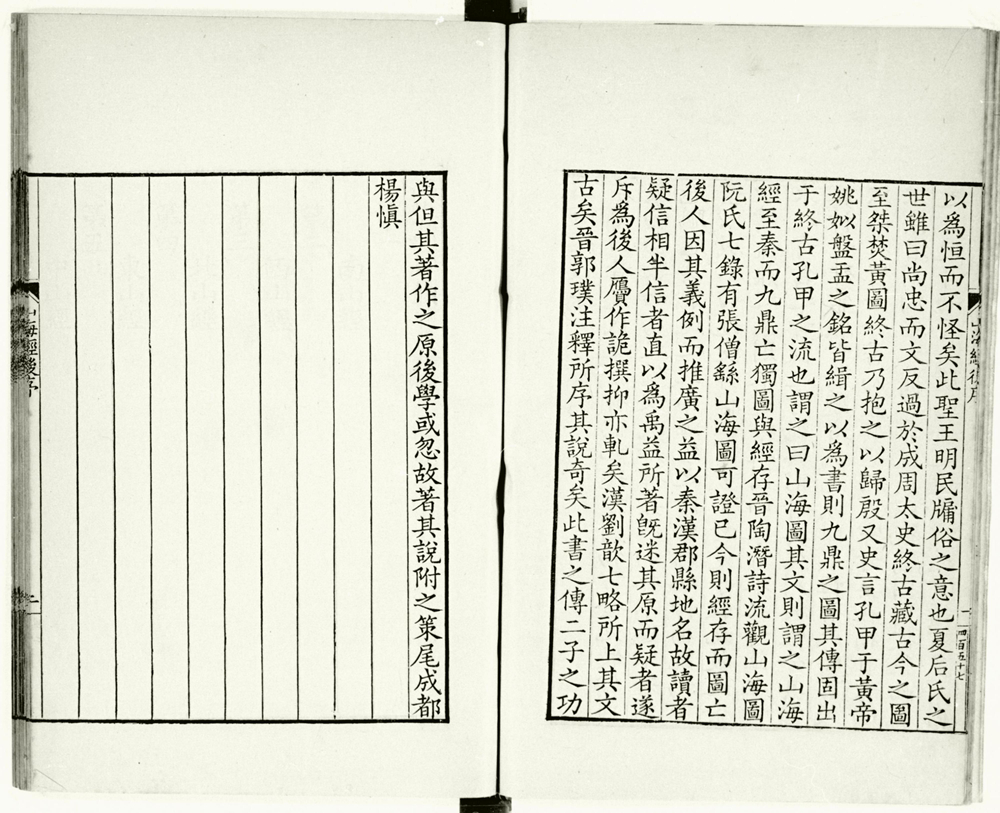 以爲恒而不怪矣此聖王明民牖俗之意也夏后氏之
世雖曰尚忠而文反過於成周太史終古藏古今之圖
至桀焚黃圖終古乃抱之以歸殷又史言孔甲于黃帝
姚姒盤盂之銘皆緝之以爲書則九鼎之圖其傳固出
于終古孔甲之流也謂之曰山海圖其文則謂之山海
經至秦而九鼎亡獨圖與經存晉陶潛詩流觀山海圖
阮氏七錄有張僧繇山海圖可證已今則經存而圖亡
後人因其義例而推廣之益以秦漢郡縣地名故讀者
疑信相半信者直以爲禹益所著旣迷其原而疑者遂
斥爲後人贗作詭撰抑亦軋矣漢劉歆七略所上其文
古矣晉郭璞注釋所序其說奇矣此書之傳二子之功
山海經後序
一
四百五十七
與但其著作之原後學或忽故著其說附之策尾成都
楊愼
山海經後序
二